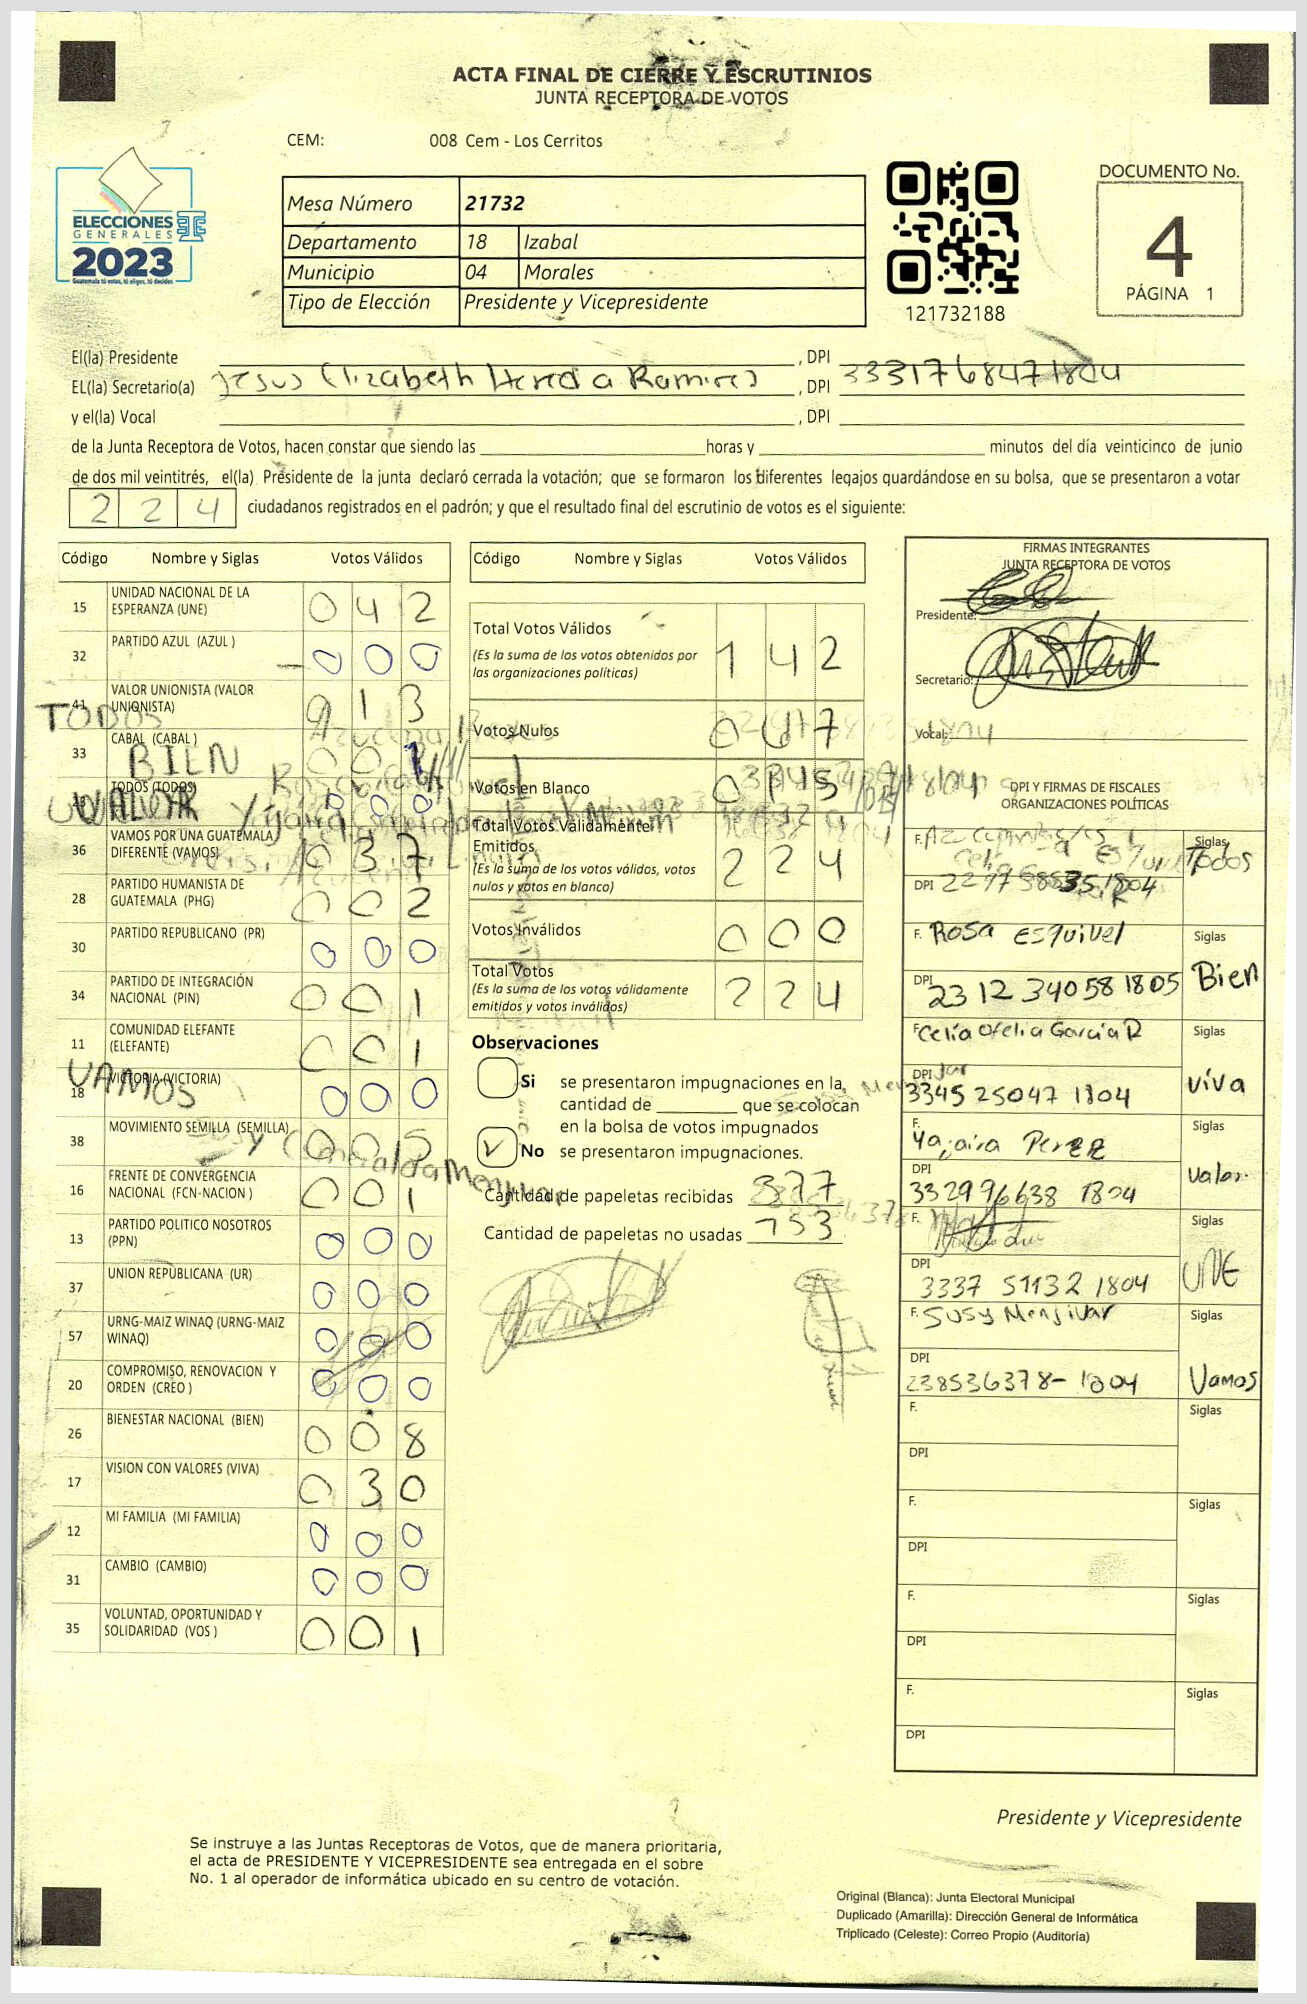 ACTA FINAL DE CIERRE Y ESCRUTINIOS
JUNTA RECEPTORA DE VOTOS
CEM: 008 Cem - Los Cerritos
ELECCIONES
GENERALES
2023
Guatemala tú votas, tú eliges, tú decides
Mesa Número 21732
Departamento 18 Izabal
Municipio 04 Morales
Tipo de Elección Presidente y Vicepresidente
121732188
DOCUMENTO No.
4
PÁGINA 1
El(la) Presidente , DPI
EL(la) Secretario(a) Jesus Elizabeth Heredia Ramirez , DPI 3331768471804
y el(la) Vocal , DPI
de la Junta Receptora de Votos, hacen constar que siendo las horas y minutos del día veinticinco de junio
de dos mil veintitrés, el(la) Presidente de la junta declaró cerrada la votación; que se formaron los diferentes legajos guardándose en su bolsa, que se presentaron a votar
224 ciudadanos registrados en el padrón; y que el resultado final del escrutinio de votos es el siguiente:
Código Nombre y Siglas Votos Válidos
15 UNIDAD NACIONAL DE LA ESPERANZA (UNE) 042
32 PARTIDO AZUL (AZUL ) 000
41 VALOR UNIONISTA (VALOR UNIONISTA) 013
TODOS
33 CABAL (CABAL ) 00
BIEN
TODOS (TODOS) 000
36 VAMOS POR UNA GUATEMALA DIFERENTE (VAMOS) 037
28 PARTIDO HUMANISTA DE GUATEMALA (PHG) 002
30 PARTIDO REPUBLICANO (PR) 000
34 PARTIDO DE INTEGRACIÓN NACIONAL (PIN) 001
11 COMUNIDAD ELEFANTE (ELEFANTE) 001
VAMOS
18 VICTORIA (VICTORIA) 000
38 MOVIMIENTO SEMILLA (SEMILLA) 005
16 FRENTE DE CONVERGENCIA NACIONAL (FCN-NACION ) 001
13 PARTIDO POLITICO NOSOTROS (PPN) 000
37 UNION REPUBLICANA (UR) 000
57 URNG-MAIZ WINAQ (URNG-MAIZ WINAQ) 000
20 COMPROMISO, RENOVACION Y ORDEN (CREO ) 000
26 BIENESTAR NACIONAL (BIEN) 008
17 VISION CON VALORES (VIVA) 030
12 MI FAMILIA (MI FAMILIA) 000
31 CAMBIO (CAMBIO) 000
35 VOLUNTAD, OPORTUNIDAD Y SOLIDARIDAD (VOS ) 001
Código Nombre y Siglas Votos Válidos
Total Votos Válidos 142
(Es la suma de los votos obtenidos por
las organizaciones políticas)
Votos Nulos 067
Votos en Blanco 015
Total Votos Válidamente
Emitidos 224
(Es la suma de los votos válidos, votos
nulos y votos en blanco)
Votos Inválidos 000
Total Votos 224
(Es la suma de los votos válidamente
emitidos y votos inválidos)
Observaciones
Si se presentaron impugnaciones en la
cantidad de que se colocan
en la bolsa de votos impugnados
✓ No se presentaron impugnaciones.
Cantidad de papeletas recibidas 377
Cantidad de papeletas no usadas 153
FIRMAS INTEGRANTES
JUNTA RECEPTORA DE VOTOS
Presidente:
Secretario:
Vocal:
DPI Y FIRMAS DE FISCALES
ORGANIZACIONES POLÍTICAS
F. Siglas Todos
DPI
F. Rosa Esquivel Siglas Bien
DPI 2312 34058 1805
F. Celia Ofelia García R Siglas viva
DPI 3345 25047 1804
F. Yajaira Perez Siglas Valor
DPI 332996638 1804
F. Siglas UNE
DPI 3337 51132 1804
F. Susy Mensivar Siglas Vamos
DPI 238536378-1804
F. Siglas
DPI
F. Siglas
DPI
F. Siglas
DPI
F. Siglas
DPI
Presidente y Vicepresidente
Se instruye a las Juntas Receptoras de Votos, que de manera prioritaria,
el acta de PRESIDENTE Y VICEPRESIDENTE sea entregada en el sobre
No. 1 al operador de informática ubicado en su centro de votación.
Original (Blanca): Junta Electoral Municipal
Duplicado (Amarilla): Dirección General de Informática
Triplicado (Celeste): Correo Propio (Auditoría)